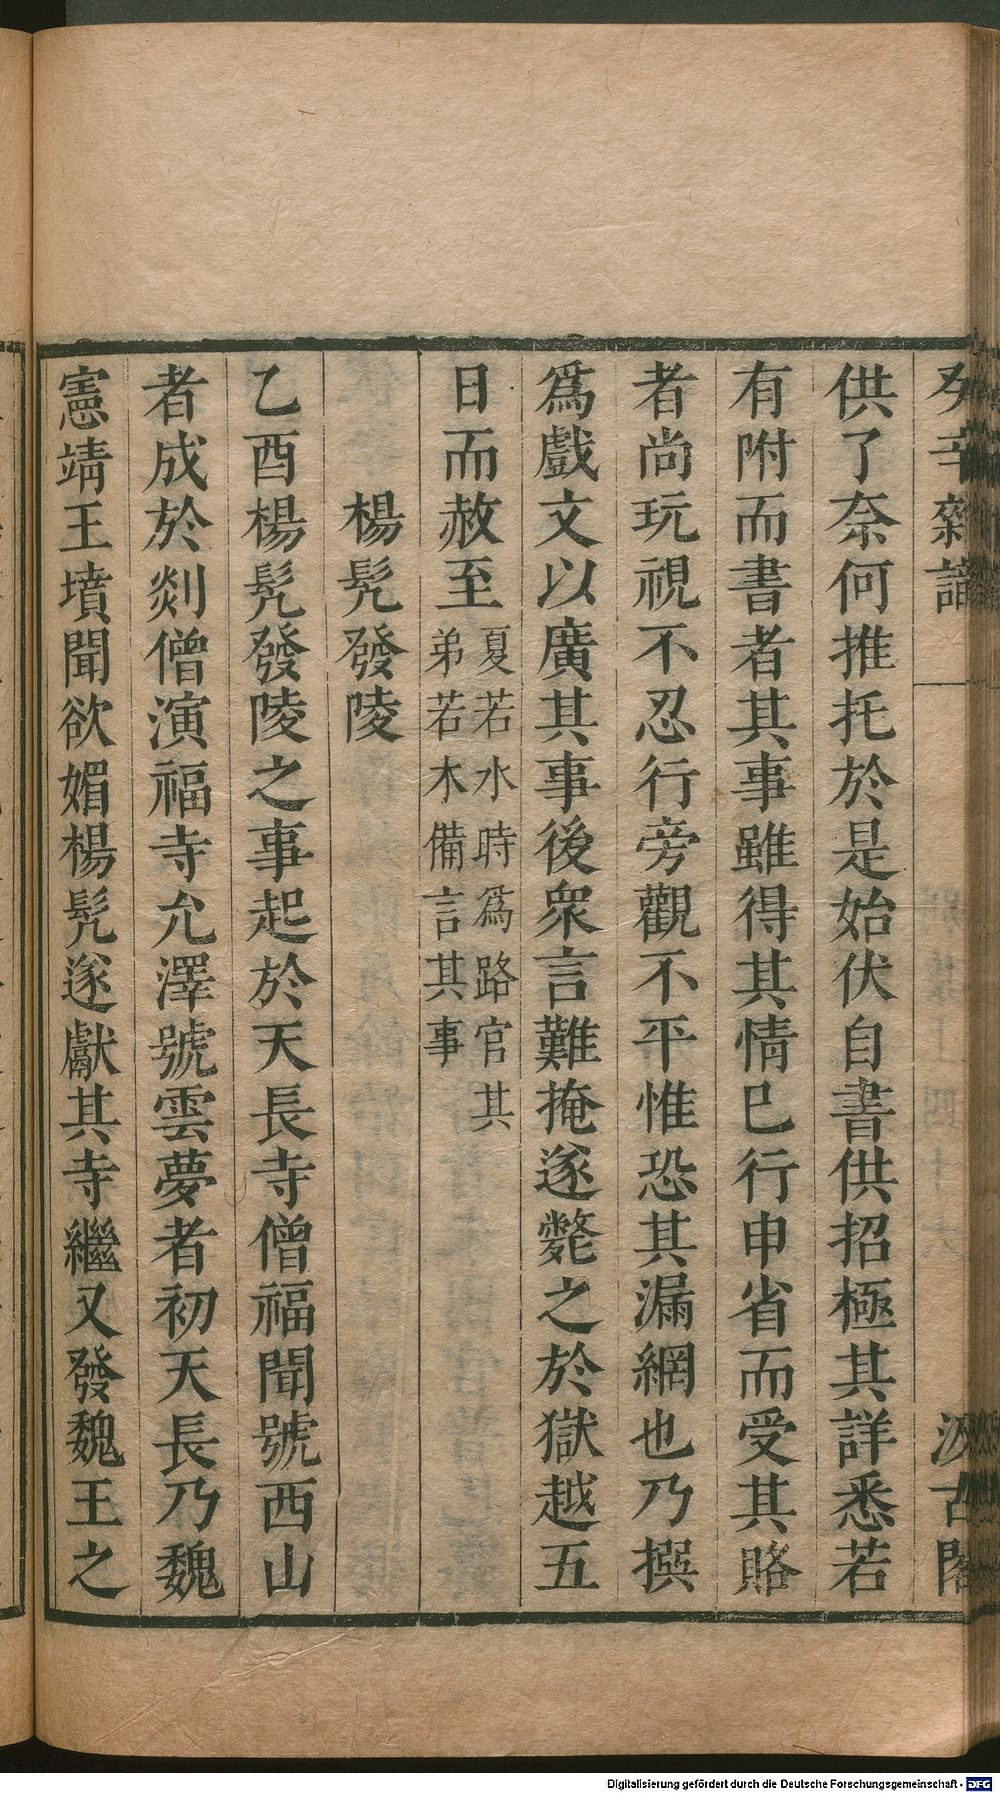 癸辛雜識
汲古閣
供了奈何推托於是始伏自書供招極其詳悉若
有附而書者其事雖得其情已行申省而受其賂
者尚玩視不忍行旁觀不平惟恐其漏網也乃撰
爲戲文以廣其事後衆言難掩遂斃之於獄越五
日而赦至
夏若水時爲路官其
弟若木備言其事
楊髡發陵
乙酉楊髡發陵之事起於天長寺僧福聞號西山
者成於剡僧演福寺允澤號雲夢者初天長乃魏
憲靖王墳聞欲媚楊髡遂獻其寺繼又發魏王之
Digitalisierung gefördert durch die Deutsche Forschungsgemeinschaft - DFG